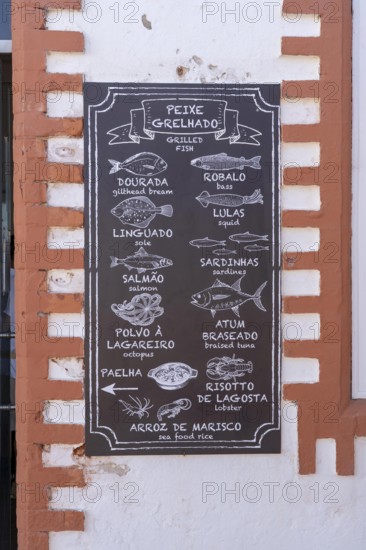 PEIXE
GRELHADO
GRILLED
FISH
DOURADA
gilthead bream
ROBALO
bass
LINGUADO
sole
LULAS
squid
SALMÃO
salmon
SARDINHAS
sardines
POLVO À
LAGAREIRO
octopus
ATUM
BRASEADO
braised tuna
PAELHA
RISOTTO
DE LAGOSTA
lobster
ARROZ DE MARISCO
sea food rice